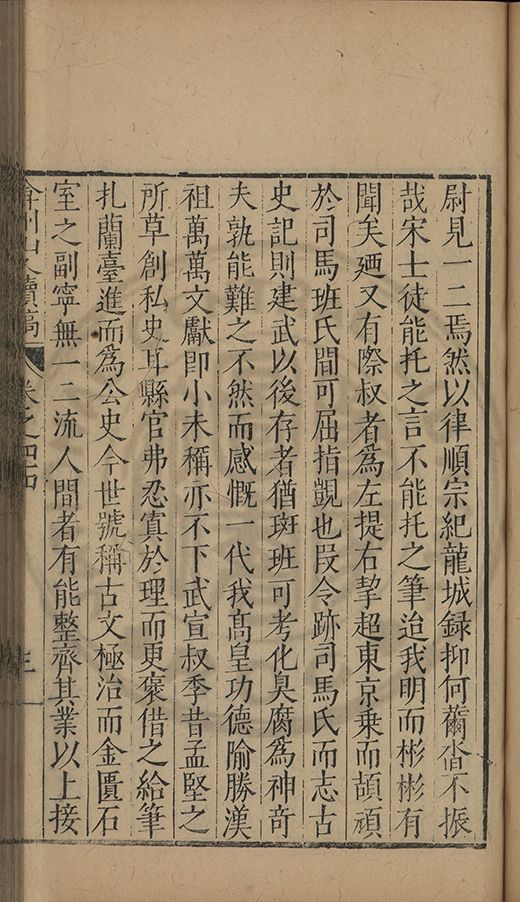 尉見一二焉然以律順宗紀龍城録抑何薾沓不振
哉宋士徒能托之言不能托之筆迨我明而彬彬有
聞矣廼又有際叔者為左提右挈超東京乗而頡頏
於司馬班氏間可屈指覬也叚令跡司馬氏而志古
史記則建武以後存者猶斑班可考化臭腐為神奇
夫孰能難之不然而感慨一代我髙皇功德隃勝漢
祖萬萬文獻即小未稱亦不下武宣叔季昔孟堅之
所草創私史耳縣官弗忍寘於理而更褒借之給筆
扎蘭臺進而為公史今世號稱古文極治而金匱石
室之副寧無一二流人間者有能整齊其業以上接
弇州山人續稿 卷之四十